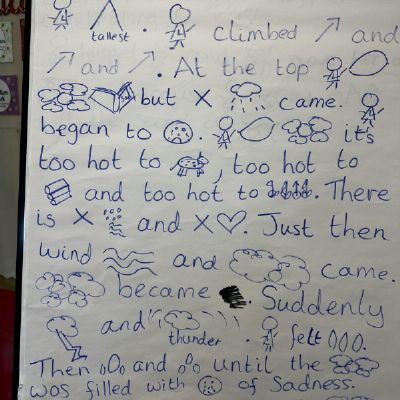 tallest . climbed and
and . At the top
but X came.
began to . it's
too hot to , too hot to
and too hot to . There
is X and X . Just then
wind and came.
became . Suddenly
and thunder . felt
Then and until the
was filled with of Sadness.